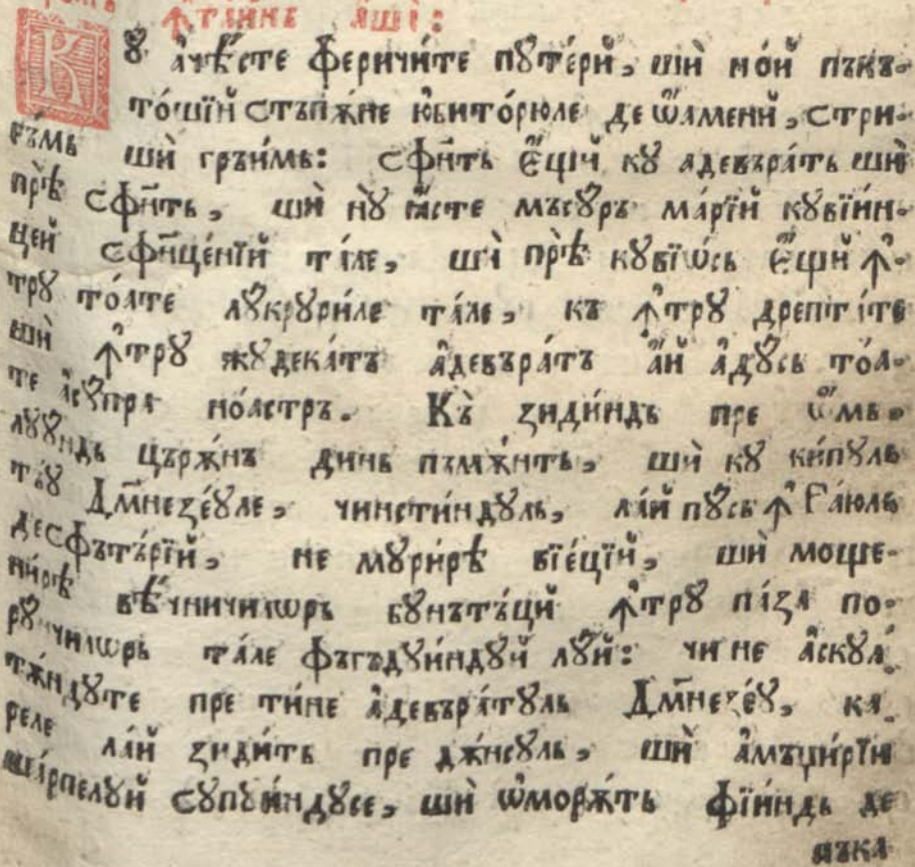 ꙟтаинѣ аши:
Кꙋ ачѣсте феричите пꙋтерй, ши нои пъкъ-
тошїй стъпѫне юбиторюле де ѡамени, стри-
гъмь ши грꙋимь: сфⷩ҇ть є҆щй кꙋ адевърать ши
прѣ сфⷩ҇ть, ши нꙋ ꙗсте мъсꙋръ мърїй кꙋвїин-
цей сфⷩ҇ценїй тале, ши прѣ кꙋвїѡсь є҆щй ꙟ-
трꙋ тоате лꙋкрꙋриле тале, къ ꙟтрꙋ дрептате
ши ꙟтрꙋ жꙋдекатъ адевъратъ ай адꙋсь тоа-
те асꙋпра ноастръ. Къ зидиндь пре ѡмь,
лꙋѡндь църѫнъ динь пъмѫнть, ши кꙋ кипꙋль
тъꙋ Дм҃незеꙋле, чинстиндꙋль, лай пꙋсь ꙟ Раюль
десфътърїй, не мꙋрирѣ вїецїй, ши моще-
нирѣ вѣчничилѡрь бꙋнътъци ꙟтрꙋ паза по-
рꙋнчилѡрь тале фъгъдꙋиндꙋй лꙋй: чи не аскꙋл-
тѫндꙋте пре тине адевъратꙋль Дм҃незеꙋ, ка-
реле лай зидить пре джнсꙋль, ши амъцирїи
шарпелꙋй сꙋпꙋиндꙋсе, ши ѡморѫть фїиндь де